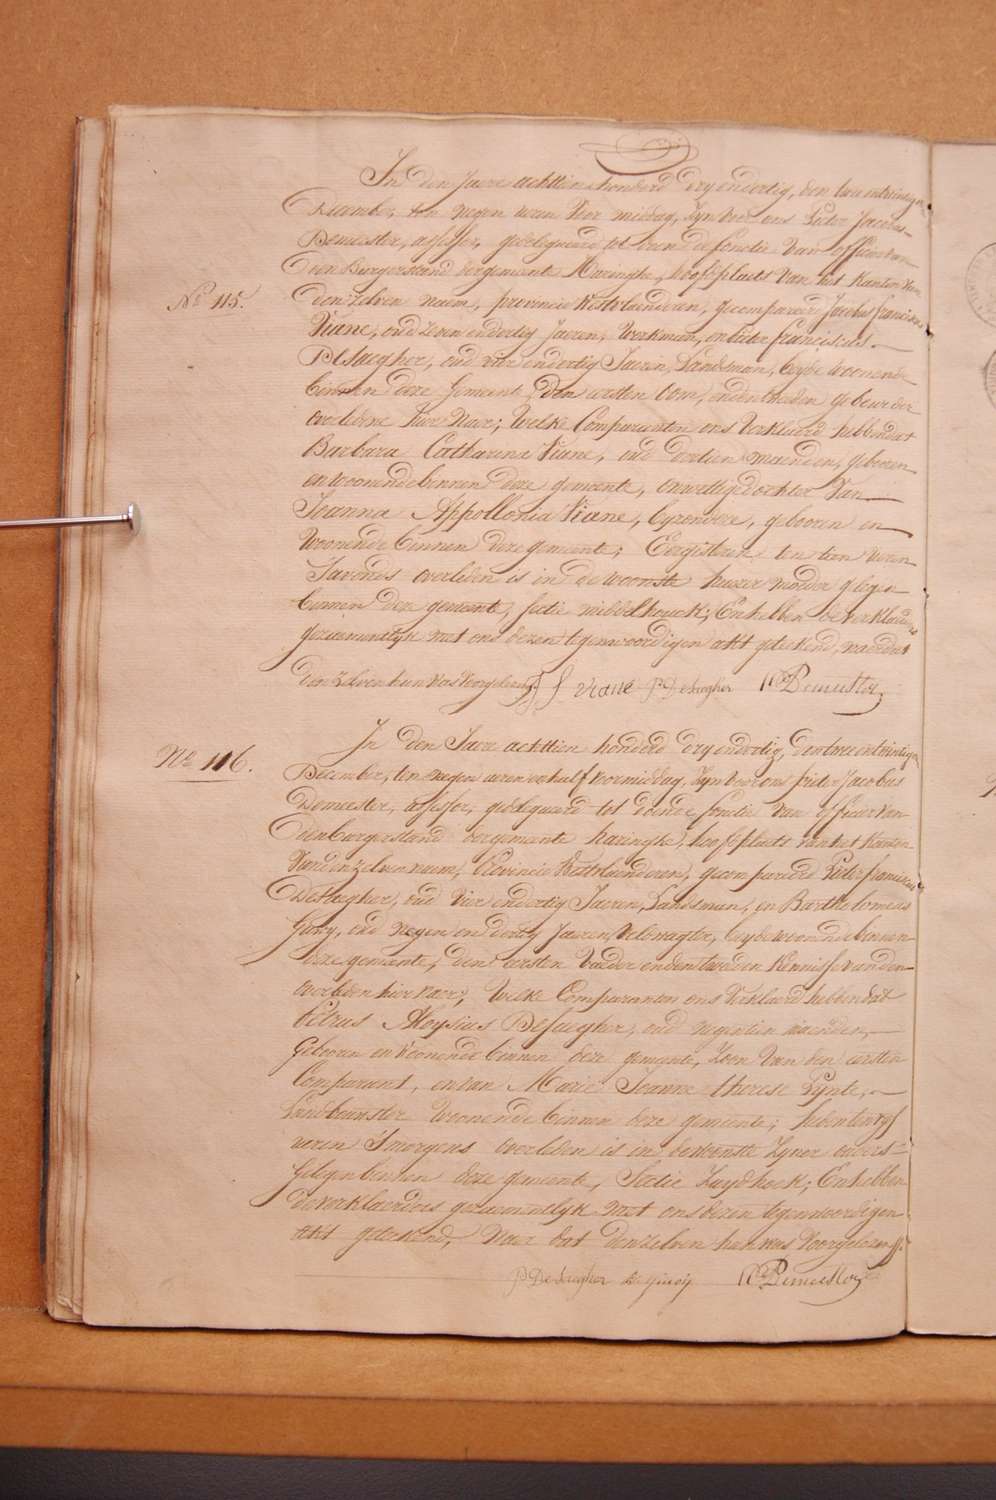 In den Jaere achttien honderd dry en dertig, den twee entwintigen
December, ten negen uren voor middag, Zyn voor ons Pieter Jacobus
Demeester, assessor, gedelegueerd tot doen de fonctie van officier van
den Burgerstand der gemeente Haringhe, hoofdplaets van het Kanton van
No 115.
den zelven naem, provincie Westvlaenderen, gecompareerd Jacobus franciscus
Viane, oud zeven en dertig Jaeren, Werkman, en Pieter franciscus
DeSaegher, oud vier en dertig Jaeren, Landsman, beyde woonende
binnen deze Gemeente, den eersten oom, en den tweeden gebuer der
overledene hier naer; Welke Comparanten ons Verklaerd hebben dat
Barbara Catharina Viane, oud dertien maenden, gebooren
en woonende binnen deze gemeente, onwettige dochter Van
Joanna Appollonia Viane, byzondere, gebooren en
Woonende binnen deze gemeente; Eergisteren ten tien uren
S'avonds overleden is in de woonste haerer moeder gelegen
binnen deze gemeente, sectie middelhouck; En hebben de verklaerders
gezaementlyk met ons dezen tegenwoordigen akt geteekend, naer dat
den zelven hun was voorgelezen
J F viane P Desaegher P J Demeester
No 116.
In den Jaere achttien honderd dry en dertig, den twee entwintigen
December, ten negen uren en half voormiddag, Zyn voor ons pieter Jacobus
Demeester, assessor, gedelegueerd tot doen de fonctie van officier van
den burgerstand der gemeente haringhe, hoofdplaets van het Kanton
Van den zelven naem, Provincie Westvlaenderen, gecompareerd Pieter franciscus
DeSaegher, oud Vier en dertig Jaeren, Landsman, en Bartholomeus
oud negen en dertig Jaeren, Veldwagter, beyde woonende binnen
deze gemeente, den eersten Vader en den tweeden Kennisse van den
overleden hier naer; Welke Comparanten ons Verklaerd hebben dat
Petrus Aloysius DeSaegher, oud negentien maenden,
Gebooren en Woonende binnen deze gemeente, Zoon Van den eersten
Comparant, en van Marie Joanne therese Pynte,
Landbouwster Woonende binnen deze gemeente; heden ten vyf
uren S'morgens overleden is in de woonste Zyner ouders
Gelegen binnen deze gemeente, Sectie Zuydhoek; En hebben
de verklaerders gezaementlyk met ons dezen tegenwoordigen
akt geteekend, Naer dat den zelven hun was Voorgelezen.
P Desaegher P J Demeester